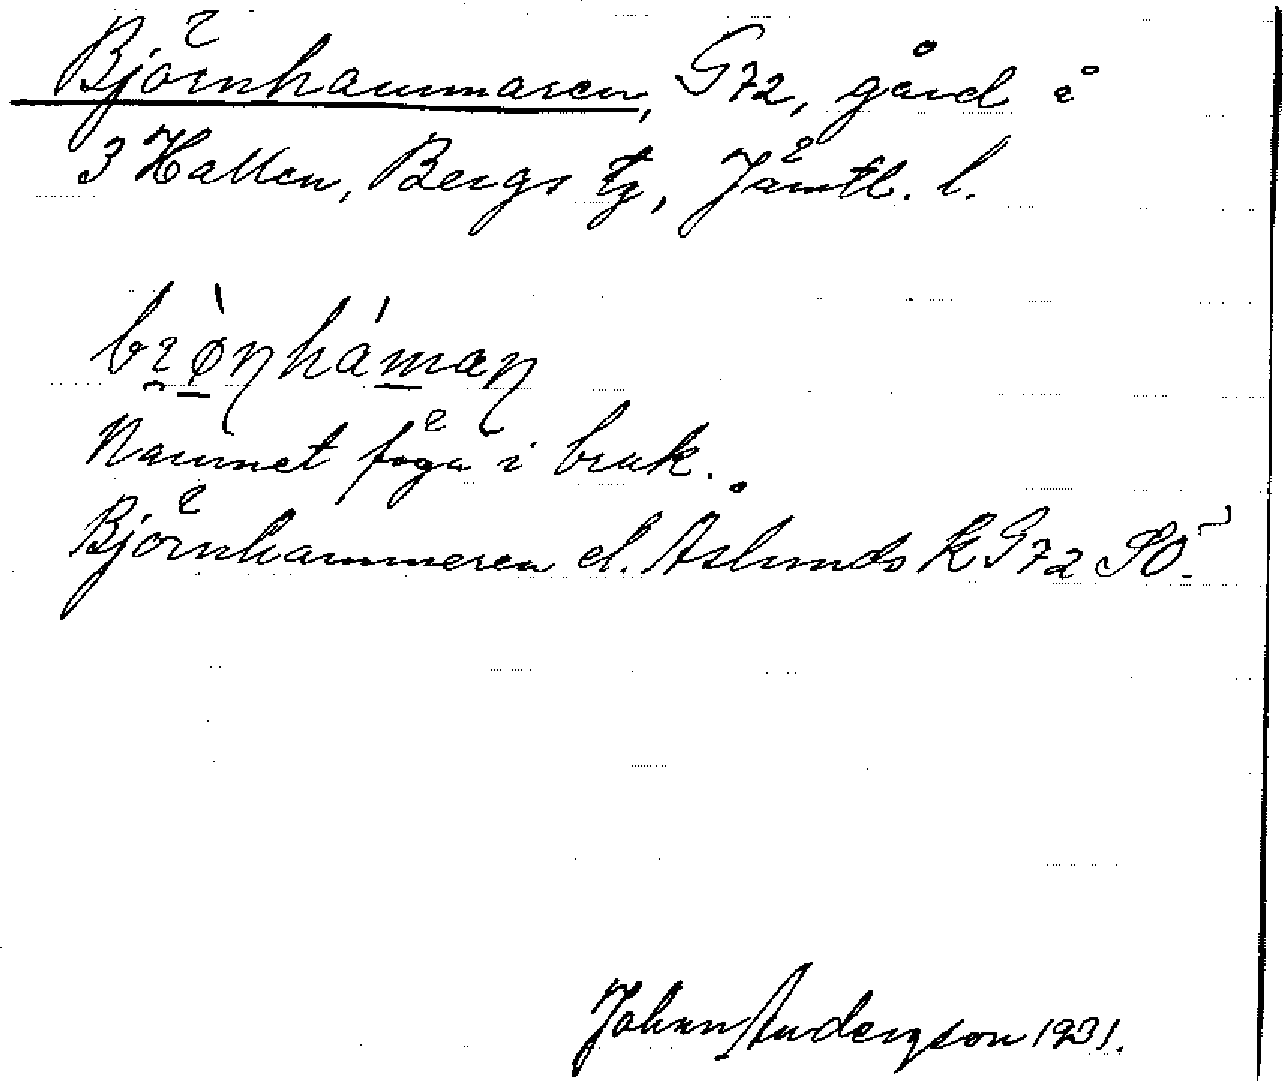 Björnhammaren, G72, gård i
3 Hallen, Bergs tg, Jämtl. l.
brønháman
Namnet föga i bruk.
Björnhammeren el. Åslunds k G72 SO
Johan Anderzson 1931.